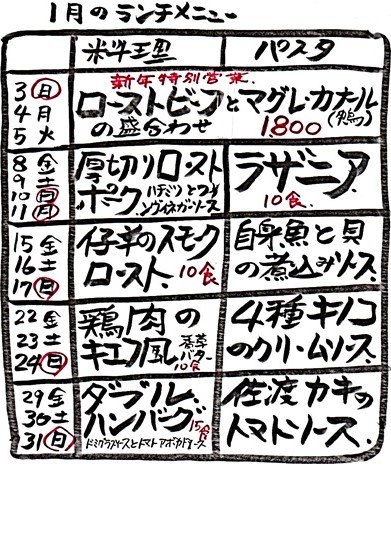 1月のランチメニュー
料理 パスタ
新年特別営業
3 日 ローストビーフとマグレ・カナール
4 月 の盛合わせ 1800 (鴨)
5 火
8 金 厚切りロースト ラザニア
9 土 ポーク ハチミツとつぶ 10食
10 日 ンヴィネガーソース
11 月
15 金 仔羊のスモーク 白身魚と貝
16 土 ロースト 10食 の煮込みソース
17 日
22 金 鶏肉の 4種キノコ
23 土 キエフ風 香草バター のクリームソース
24 日 10食
29 金 ダブル 佐渡カキの
30 土 ハンバーグ 15食 トマトソース
31 日 ドミグラスソースとトマトアボカドソース